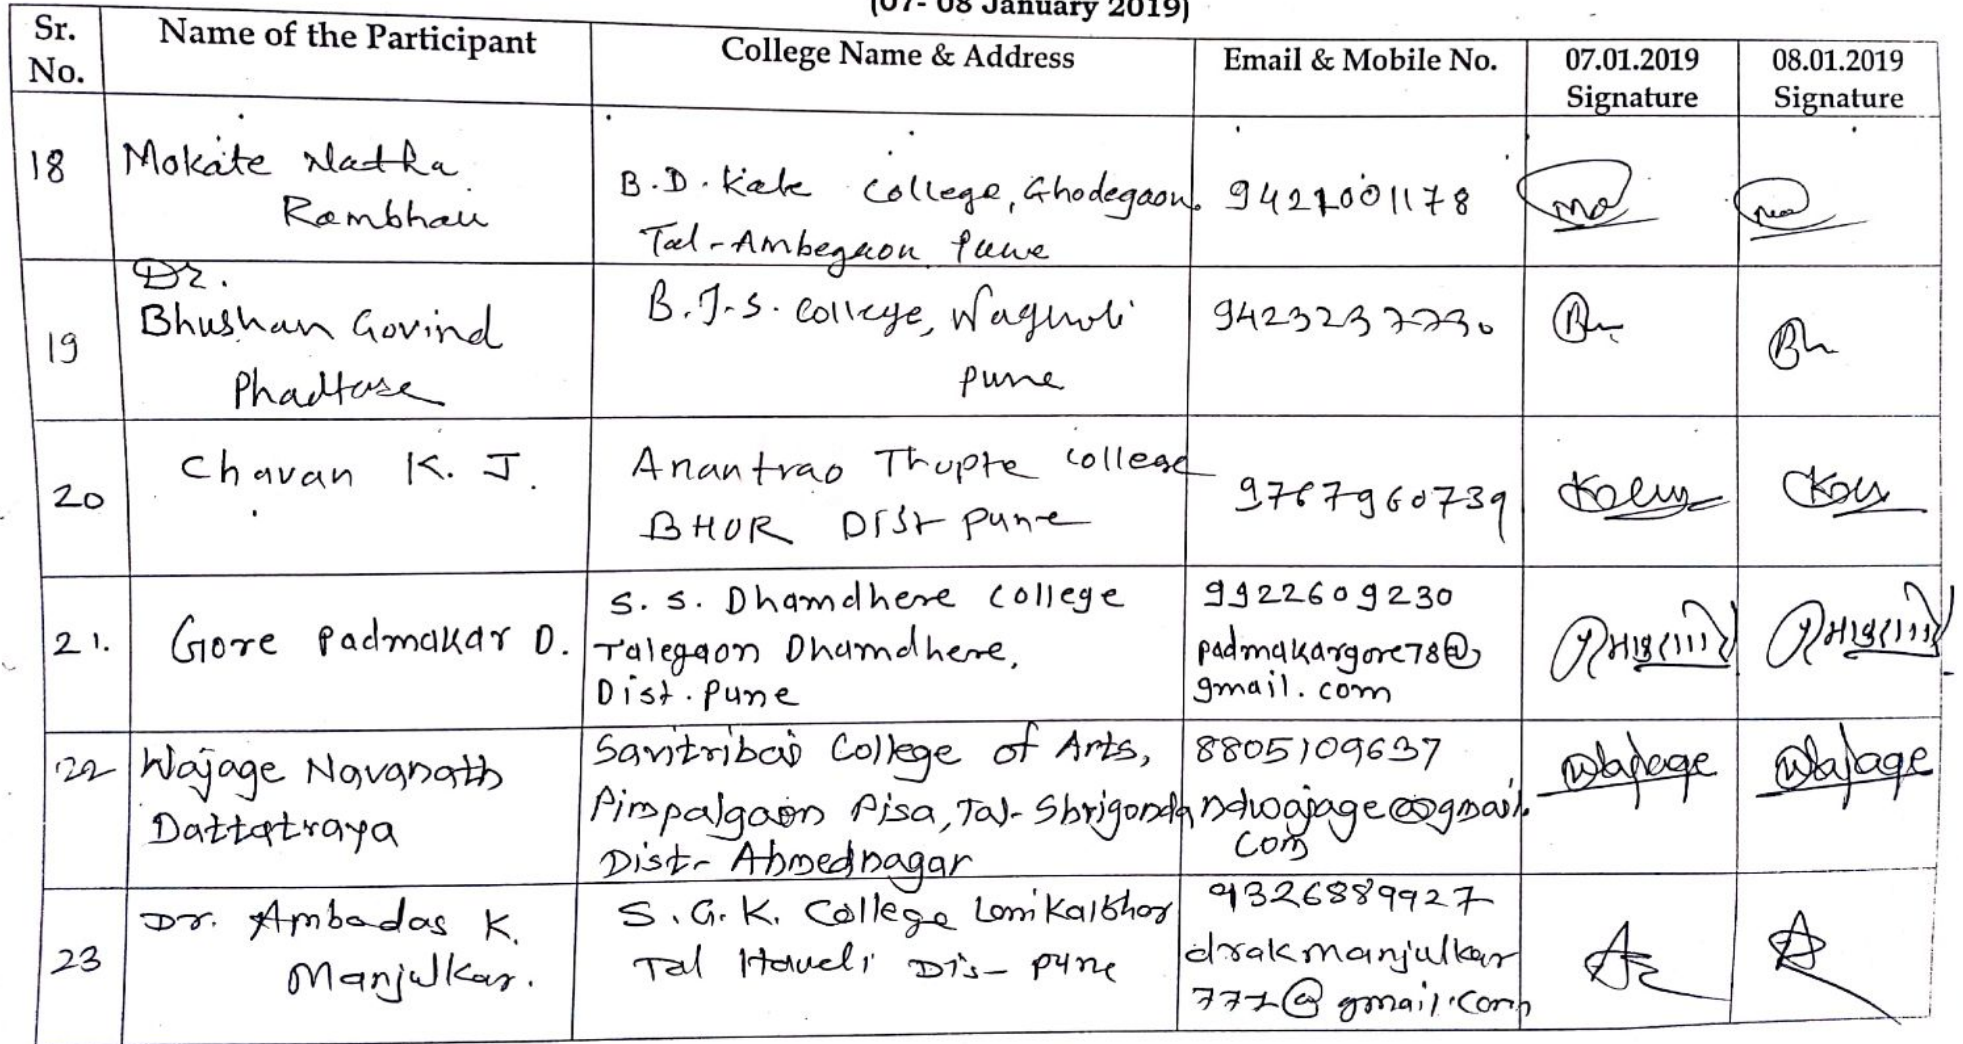 (07- 08 January 2019)
Sr. No. Name of the Participant College Name & Address Email & Mobile No. 07.01.2019 Signature 08.01.2019 Signature
18 Mokate Natha
Rambhau
B.D. Kale College, Ghodegaon.
Tal-Ambegaon Pune
9421001178
19 Dr.
Bhushan Govind
Phadtare
B.J.S. College, Wagholi
Pune
9423237730
20 Chavan K. J.
Anantrao Thopte College
BHOR Dist Pune
9767960739
21. Gore Padmakar D.
S. S. Dhamdhere College
Talegaon Dhamdhere,
Dist. Pune
9922609230
padmakargore78@
gmail.com
22 Wajage Navanath
Dattatraya
Savitribai College of Arts,
Pimpalgaon Pisa, Tal- Shrigonda
Dist- Ahmednagar
8805109637
ndwajage@gmail.
com
Wajage
Wajage
23 Dr. Ambadas K.
Manjulkar.
S.G.K. College Lonikalbhor
Tal Haveli Dis- Pune
9326889927
drakmanjulkar
777@gmail.com